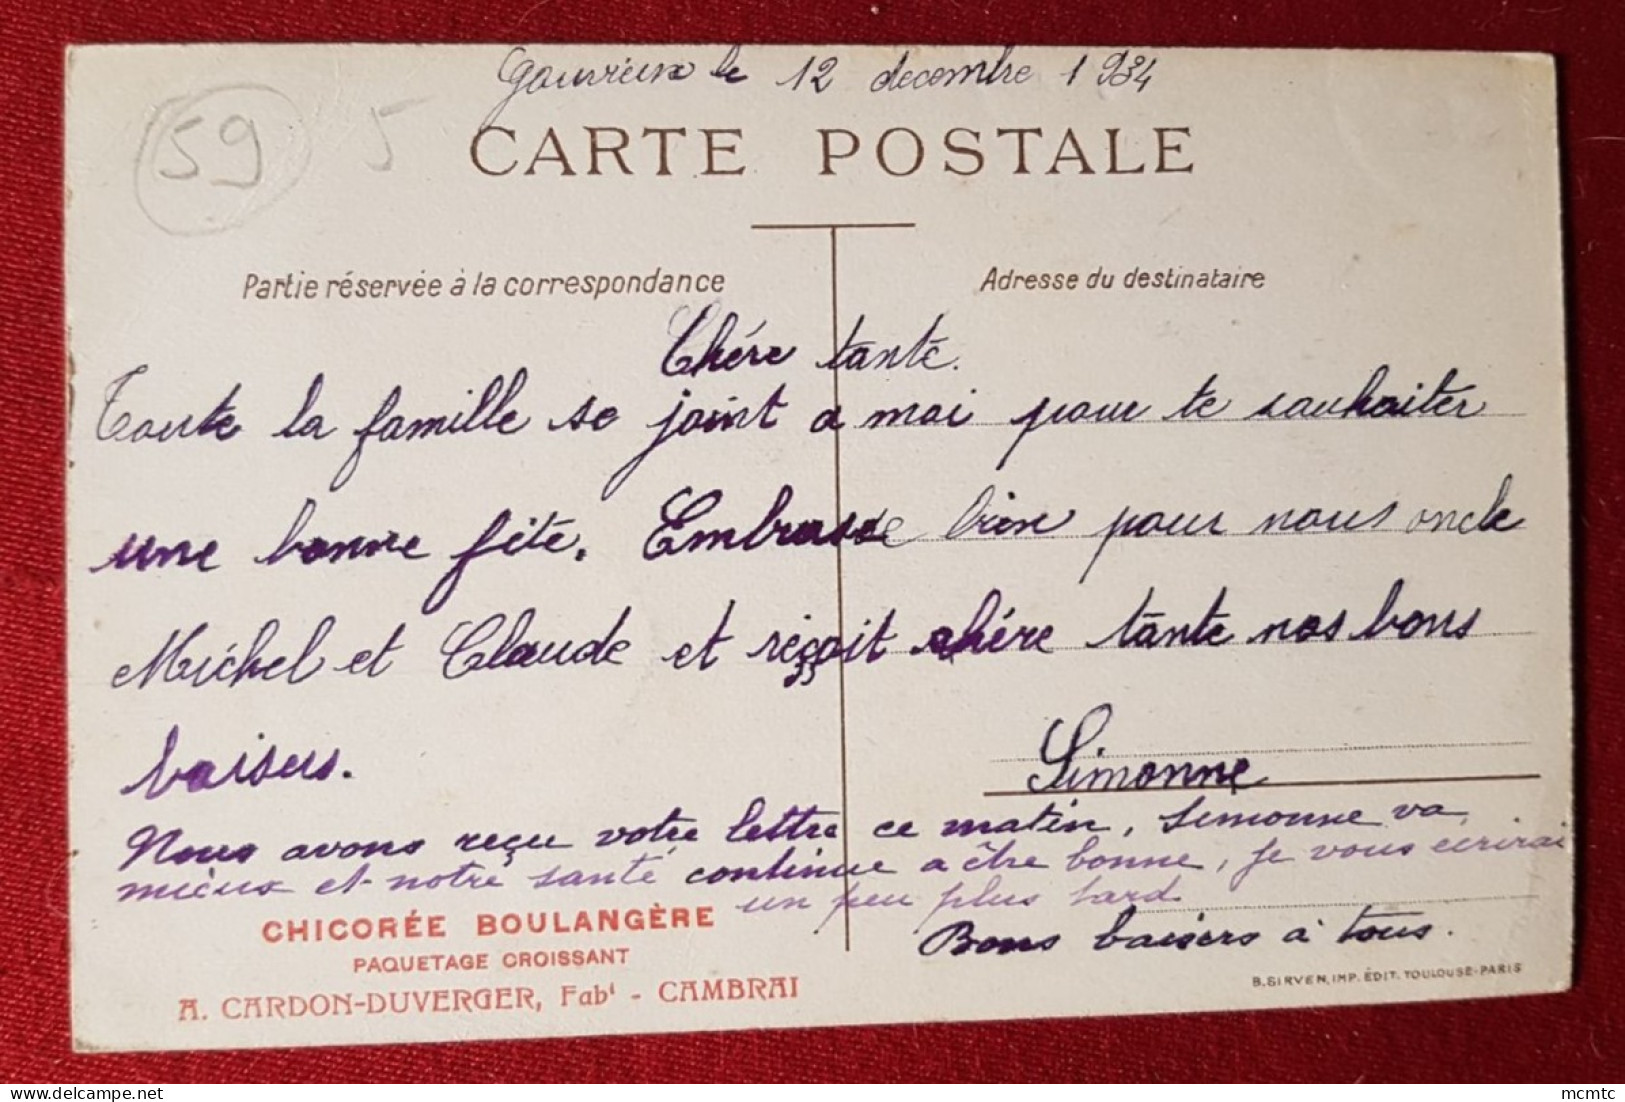 Gouvieux le 12 decembre 1934
59 5
CARTE POSTALE
Partie réservée à la correspondance
Adresse du destinataire
Chére tante.
Toute la famille se joint a moi pour te souhaiter
une bonne fête. Embrasse bien pour nous oncle
Michel et Claude et reçoit chére tante nos bons
baisers.
Simonne
Nous avons reçu votre lettre ce matin, Simonne va
mieux et notre santé continue a être bonne, je vous écrirai
un peu plus tard.
Bons baisers à tous.
CHICORÉE BOULANGÈRE
PAQUETAGE CROISSANT
A. CARDON-DUVERGER, Fabt - CAMBRAI
B. SIRVEN, IMP. ÉDIT. TOULOUSE-PARIS
mcmtc